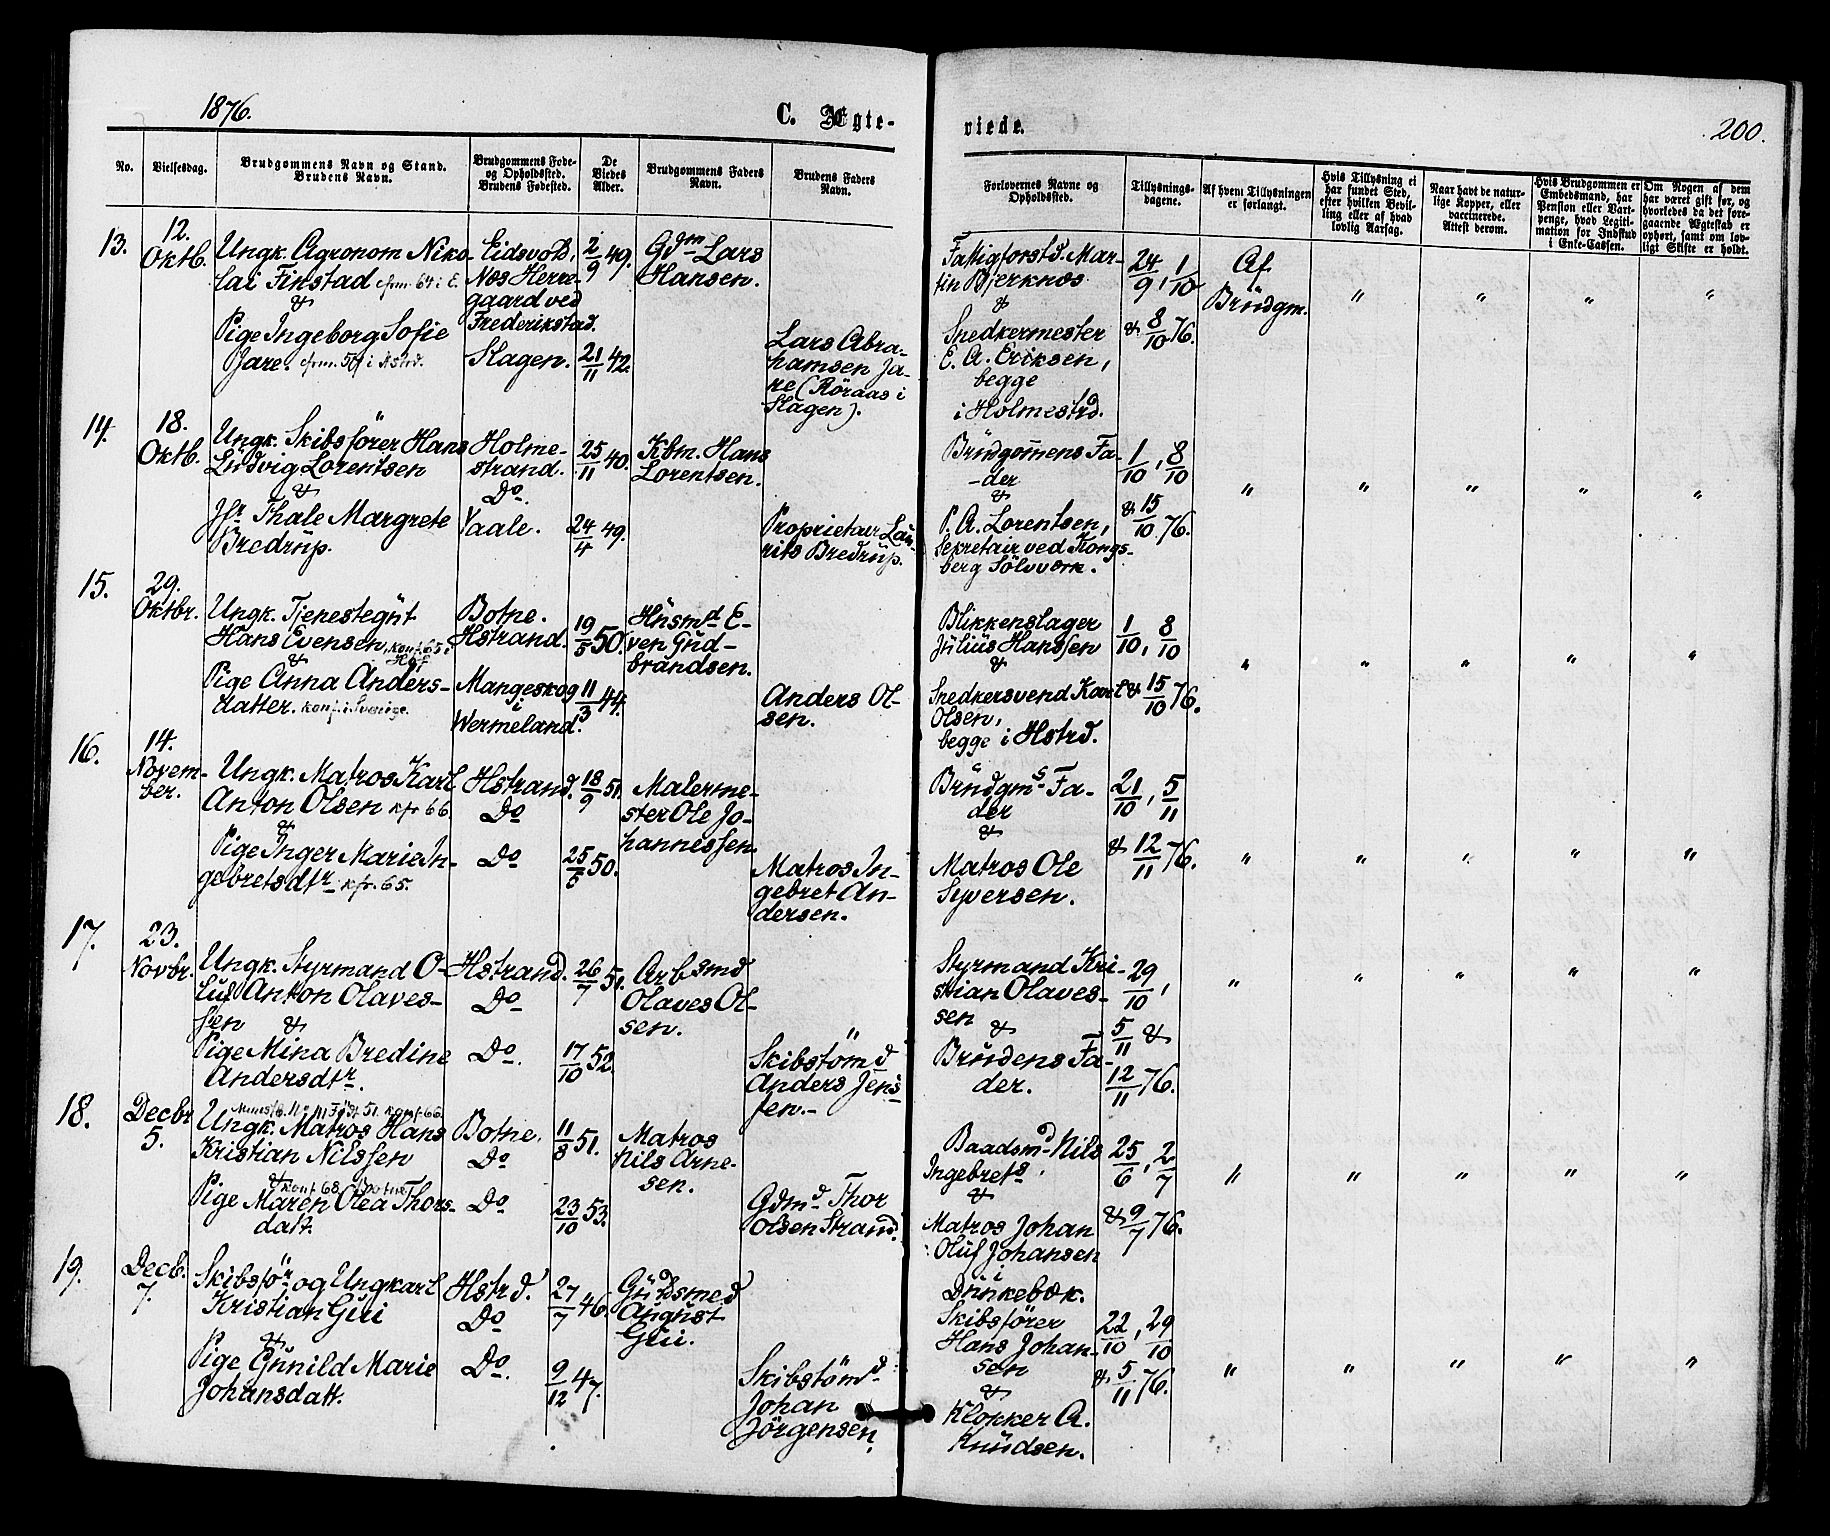 1876.
C. Ægte-
viede.
200.
No.
Vielsesdag.
Brudgommens Navn og Stand.
Brudens Navn.
Brudgommens Føde-
og Opholdssted.
Brudens Fødested.
De
Viedes
Alder.
Brudgommens Faders
Navn.
Brudens Faders
Navn.
Forlovernes Navne og
Opholdssted.
Tillysnings-
dagene.
Af hvem Tillysningen
er forlangt.
Hvis Tillysning ei
har fundet Sted,
efter hvilken Bevil-
ling eller af hvad
lovlig Aarsag.
Naar havt de natur-
lige Kopper, eller
vaccinerede.
Attest derom.
Hvis Brudgommen er
Embedsmand, har
Pension eller Vart-
penge, hvad Legiti-
mation for Indskud
i Enke-Cassen.
Om Nogen af dem
har været gift før, og
hvorledes da det fore-
gaaende Ægteskab er
ophørt, samt om lov-
ligt Skifte er holdt.
13.
12.
Oktb.
Ungk. Agronom Niko-
lai Finstad cfrm. 64 i E.
&
Pige Ingeborg Sofie
Jare. cfrm. 59 i Åstrd.
Eidsvold,
Næs Herre-
gaard ved
Frederikstad.
Slagen.
2/9 49.
21/11 42.
Gdm Lars
Hansen.
Lars Abra-
hamsen Ja-
re (Röraas i
Slagen).
Fattigforstd. Mar-
tin Bjerknæs
&
Snedkermester
E. A. Eriksen,
begge
i Holmestrd.
24/9, 1/10
& 8/10 76.
Af
Brüdgm.
" " " "
14.
18.
Oktb.
Ungk. Skibsförer Hans
Lüdvig Lorentsen
&
Jfr Thale Margrete
Bredrüp.
Holme-
strand.
Do.
Vaale.
25/11 40.
24/4 49.
Kbm. Hans
Lorentsen.
Proprietær Lau-
rits Bredrüp.
Brüdgomens Fa-
-der
&
P. A. Lorentsen,
Sekretair ved Kongs-
berg Sölvværk.
1/10, 8/10
& 15/10 76.
" " " " "
15.
29.
Oktbr.
Ungk. Tjenestegüt
Hans Evensen, konf. 65 i
Hof
&
Pige Anna Anders-
datter. konf. i Sverige.
Botne.
Hstrand.
Mangeskog
i
Wermeland.
19/5 50.
11/3 44.
Hüsmd E-
ven Güd-
brandsen.
Anders Ol-
sen.
Blikkenslager
Jülius Hanssen
&
Snedkersvend Karl
Olsen,
begge i Hstrd.
1/10, 8/10
& 15/10 76.
" " " " "
16.
14.
Novem-
ber.
Ungk. Matros Karl
Anton Olsen kfr 66.
&
Pige Inger Marie In-
gebretsdtr kfr. 65.
Hstrand.
Do
Do
18/9 51.
25/6 50.
Malerme-
ster Ole Jo-
hannessen.
Matros In-
gebret An-
dersen.
Brüdgms Fa-
der
&
Matros Ole
Syversen.
21/10, 5/11
& 12/11 76.
" " " " "
17.
23.
Novbr.
Ungk. Styrmand O-
luf Anton Olaves-
sen &
Pige Mina Bredine
Andersdtr.
Hstrand.
Do
Do.
26/7 51.
17/10 52.
Arbsmd
Olaves Ol-
sen.
Skibstömd
Anders Jens-
sen.-
Styrmand Kri-
stian Olaves-
sen
&
Brüdens Fa-
der.
29/10,
5/11 &
12/11 76.
" " " " "
18.
Decbr
5.
Ungk. Matros Hans
Kristian Nilssen
& konf. 68. i Botne
Pige Maren Olea Thors-
datt.
Botne.
Do
Do
11/8 51.
23/10 53.
Matros
Nils Arne-
sen.
Gdmd Thor
Olsen Strand.
Baadsmd Nils
Ingebrets.
&
Matros Johan
Olüf Johansen
i
Dünkebæk.
25/6, 2/7
& 9/7 76.
" " " " "
19.
Decb.
7.
Skibsför og Ungkarl
Kristian Gui
&
Pige Günild Marie
Johansdatt.
Hstrd.
Do
Do.
27/7 46.
9/12 47.
Güldsmed
Augüst
Gui.
Skibstömd.
Johan
Jörgensen.
Skibsförer
Hans Johan-
sen
&
Klokker A.
Knüdsen.
22/10, 29/10
& 5/11 76.
" " " " "